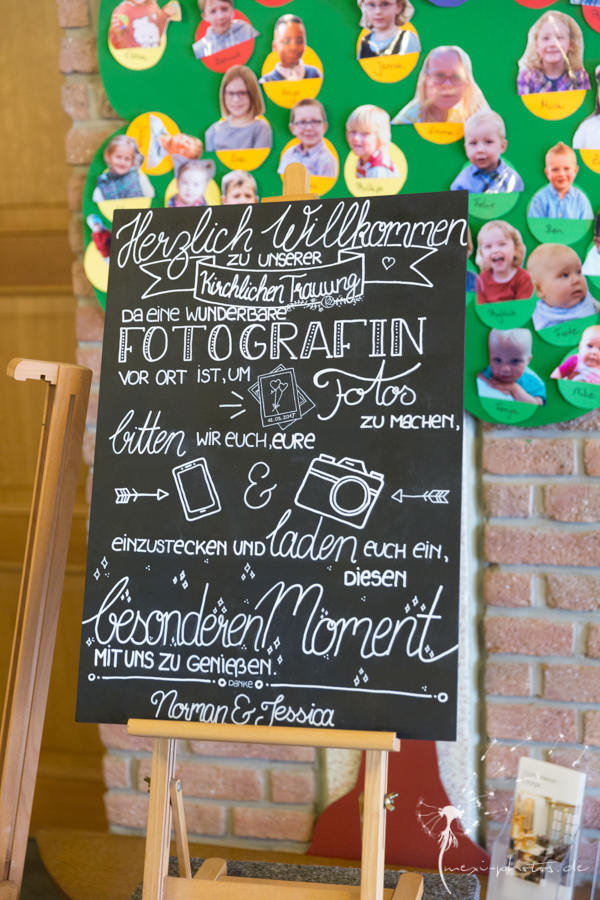 Herzlich Willkommen
ZU UNSERER
Kirchlichen Trauung
DA EINE WUNDERBARE
FOTOGRAFIN
VOR ORT IST, UM
Fotos
12.05.2017
ZU MACHEN,
bitten WIR EUCH, EURE
&
EINZUSTECKEN UND laden EUCH EIN,
DIESEN
besonderen Moment
MIT UNS ZU GENIEßEN.
DANKE
Norman & Jessica
mexi-photos.de